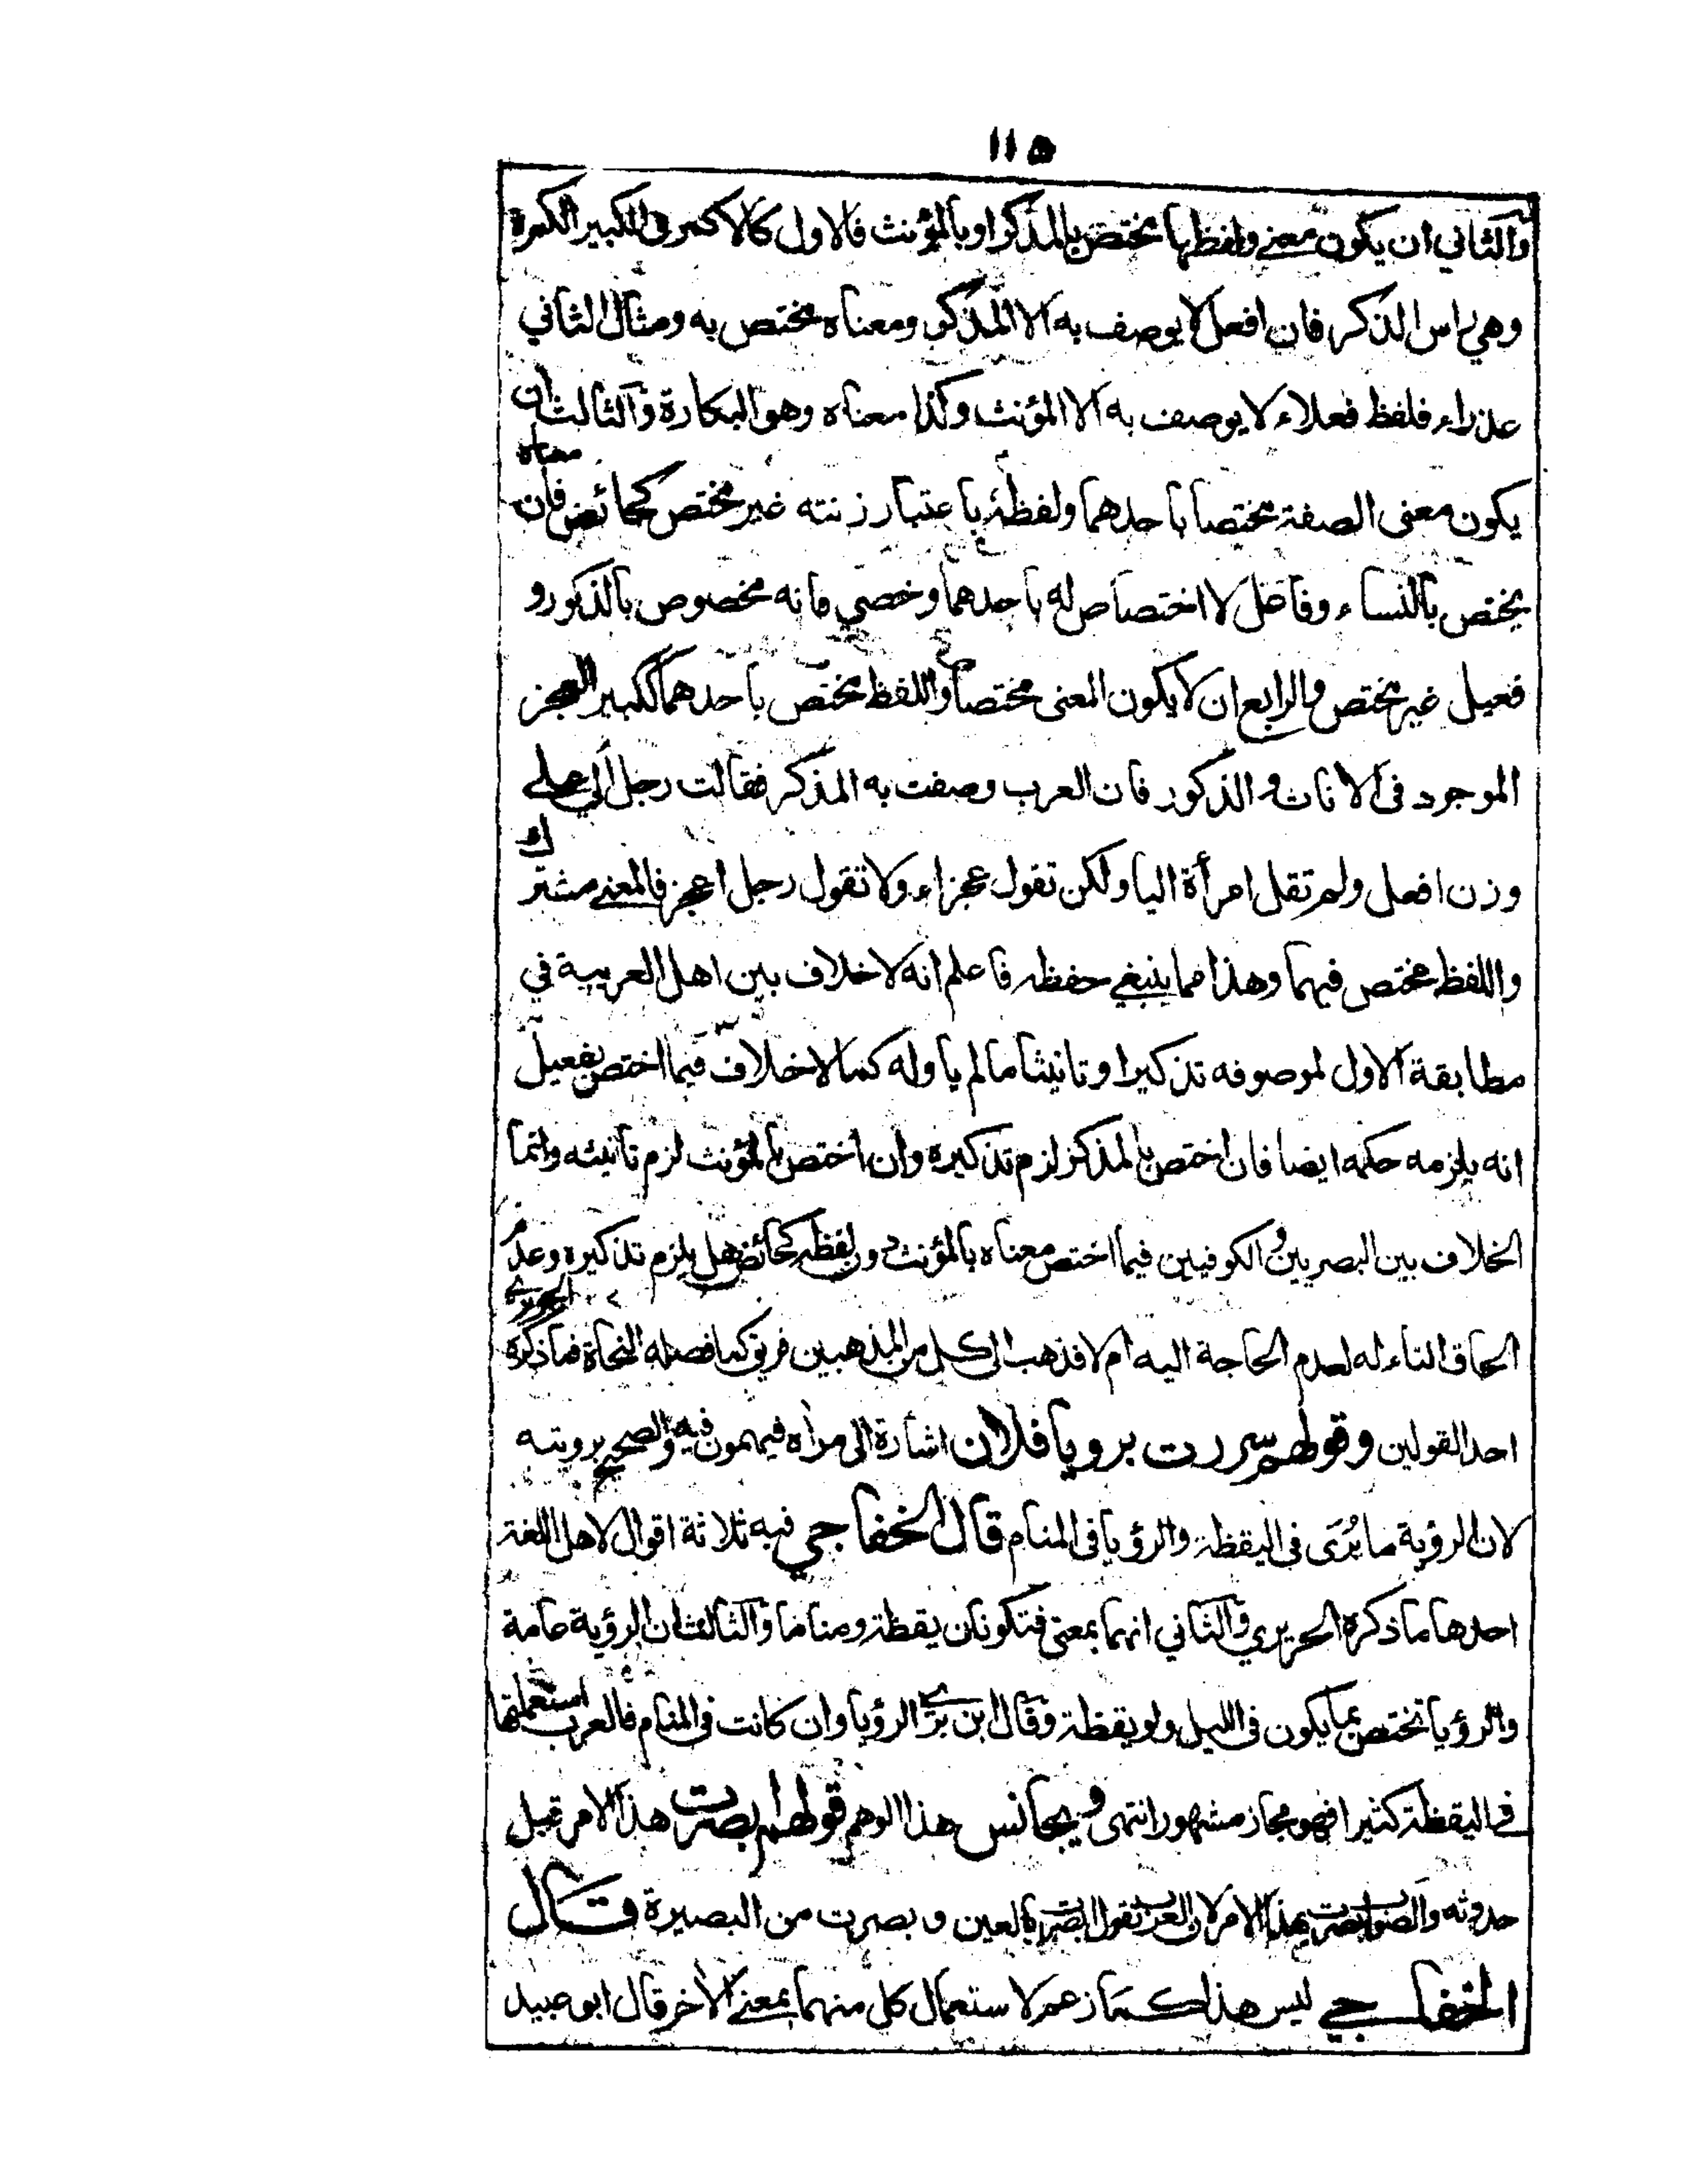 ١١٥
والثاني ان يكون معنے ولفظها يختص بالمذكر او بالمؤنث فالاول كالاكمر فى الكبير الكمرة
وهي راس الذكر فان افعل لا يوصف به الا المذكر ومعناه مختص به ومثال الثاني
عذراء فلفظ فعلاء لا يوصف به الا المؤنث وكذا معناه وهو البكارة والثالث ان
يكون معنى الصفة مختصا باحدهما ولفظة باعتبار زنته غير مختص كحائض فان معناه
يختص بالنساء وفاعل لا اختصاص له باحدهما وخصي فانه مخصوص بالذكور و
فعيل غير مختص والرابع ان لا يكون المعنى مختصا واللفظ مختص باحدهما ككبير العجز
الموجود فى الاناث والذكور فان العرب وصفت به المذكر فقالت رجل الى علے
وزن افعل ولم تقل امرأة اليا ولكن تقول عجزاء ولا تقول رجل اعجز فالمعنے مشترك
واللفظ مختص فيهما وهذا مما ينبغي حفظه فاعلم انه لا خلاف بين اهل العربية في
مطابقة الاول لموصوفه تذكيرا وتانيثا ما لم ياوله كما لا خلاف فيما اختص بفعيل
انه يلزمه حكمه ايضا فان اختص بالمذكر لزم تذكيره وان اختص بالمؤنث لزم تانيثه وانما
الخلاف بين البصريين والكوفيين فيما اختص معناه بالمؤنث دون لفظه كحائض هل يلزم تذكيره وعدم
الحاق التاء له لعدم الحاجة اليه ام لا فذهب الى كل من المذهبين فريق كما فصله النحاة فما ذكره الحريرے
احد القولين وقولهم سررت برويا فلان اشارة الى مراه فيهمون فيه والصحيح برويته
لان الرؤية ما يُرَى فى اليقظة والرؤيا فى المنام قال الخفاجي فيه ثلاثة اقوال لاهل اللغة
احدها ما ذكره الحريري والثاني انهما بمعنى فتكونان يقظة ومناما والثالث ان الرؤية عامة
والرؤيا تختص بما يكون فى الليل ولو يقظة وقال ابن برّے الرؤيا وان كانت فى المنام فالعرب استعملتها
فے اليقظة كثيرا فهو مجاز مشهور انتهى ويجانس هذا الوهم قولهم ابصرت هذا الامر قبل
حدوثه والصواب بصرت بهذا الامر لان العرب تقول ابصرت بالعين وبصرت من البصيرة قال
الخفاجے ليس هذا كما زعم لاستعمال كل منهما بمعنے الاخر قال ابو عبيد